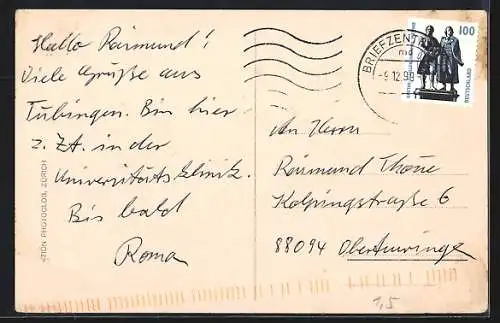 Hallo Raimund!
Viele Grüße aus
Tübingen. Bin hier
z. Zt. in der
Universitäts Klinik.
Bis bald
Roma
BRIEFZENTR
-9.12.99
100
DEUTSCHLAND
An Herrn
Raimund
Kolpingstraße 6
88094 Oberteuringen
TION PHOTOGLOB, ZÜRICH
1,5